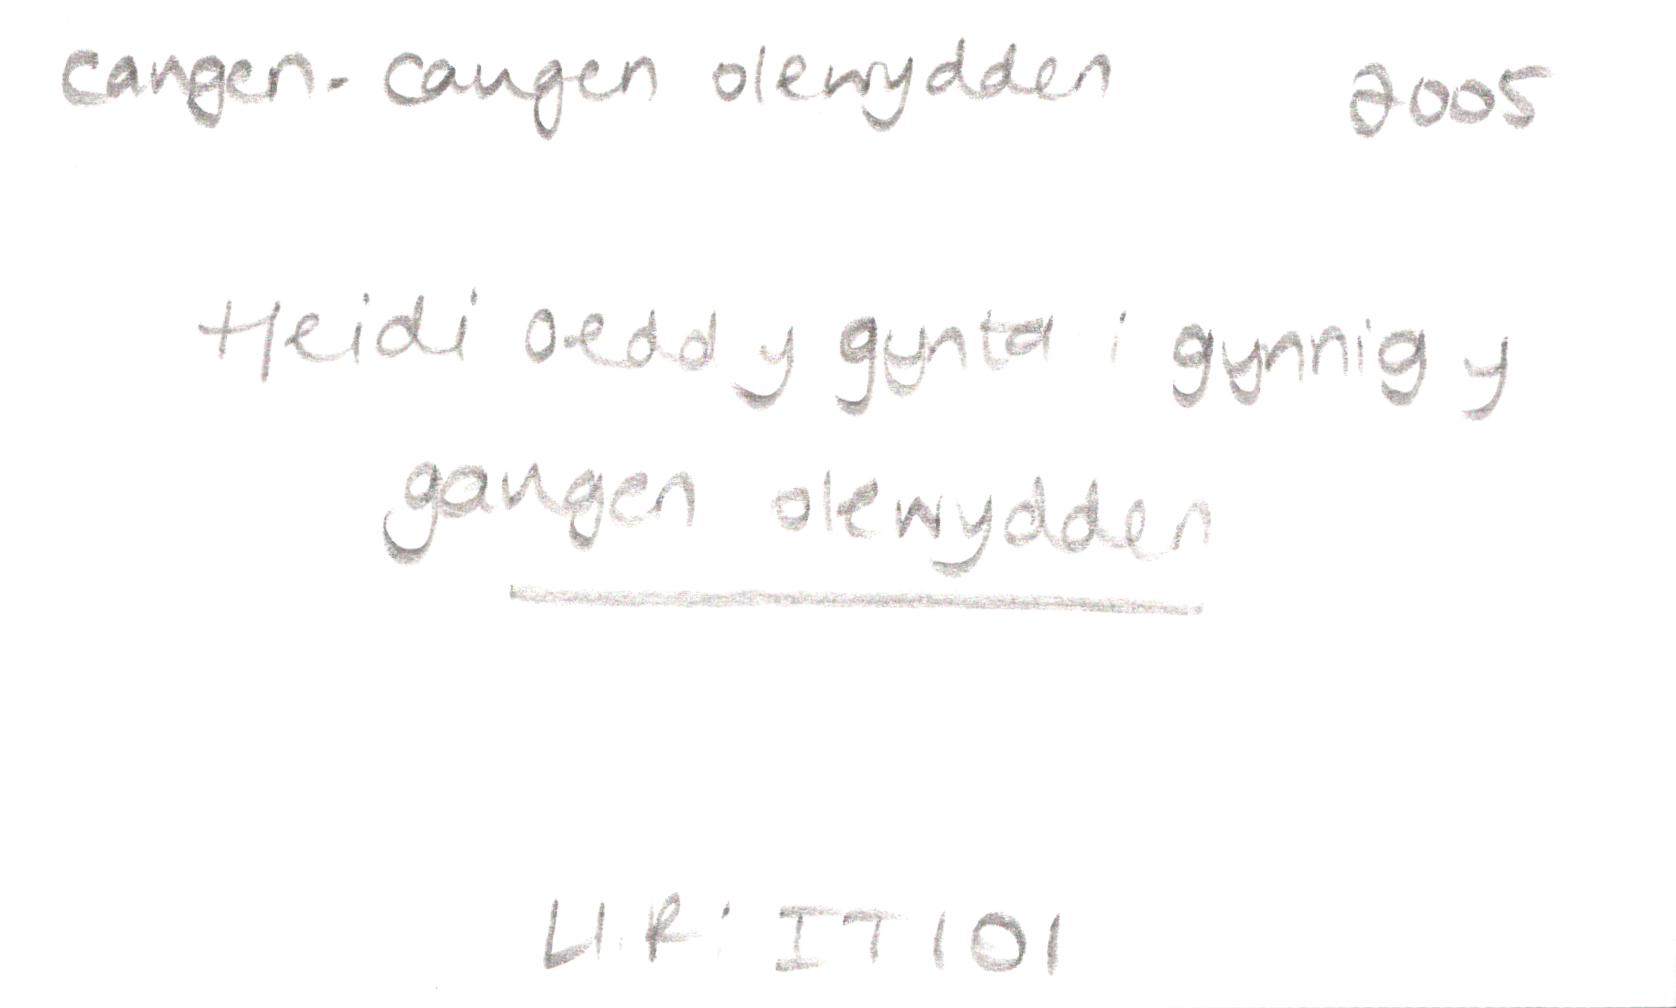 cangen. cangen olewydden 2005
Heidi oedd y gynta i gynnig y
gangen olewydden
Ll.R: IT101